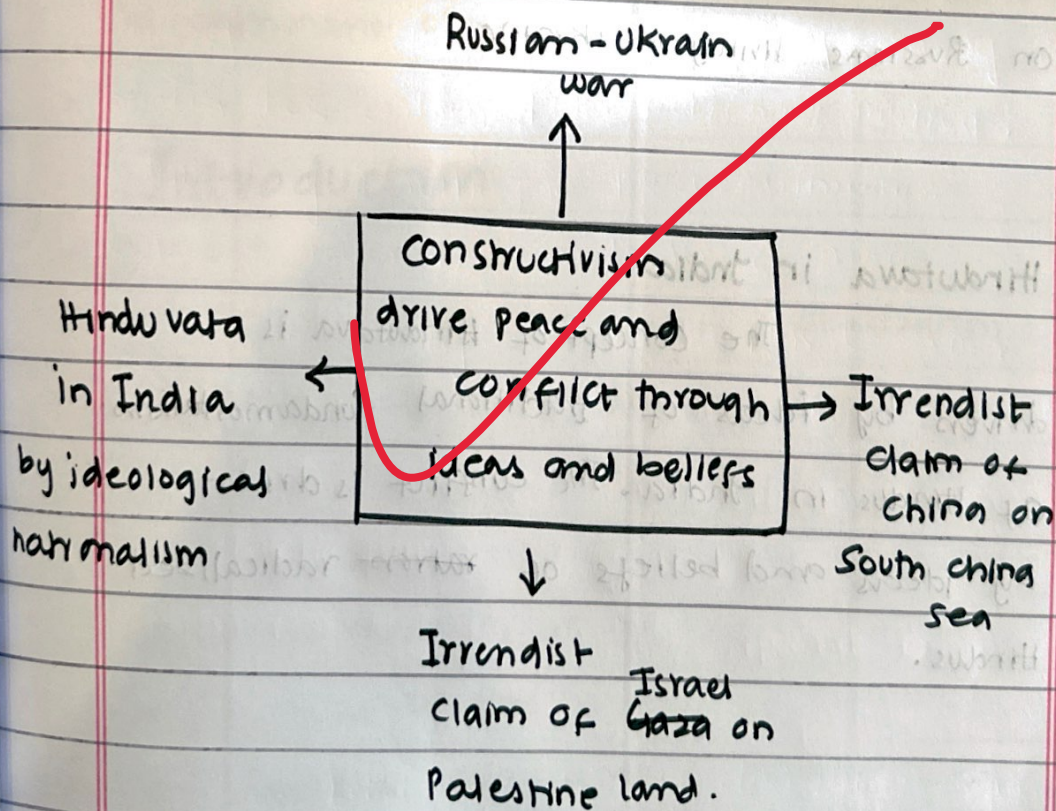 Russian - Ukrain
war
Constructivism
drive peace and
conflict through
ideas and beliefs
Hinduvata
in India
by ideological
nationalism
Irrendist
claim of
China on
South China
sea
Irrendist
claim of Gaza Israel on
Palestine land.